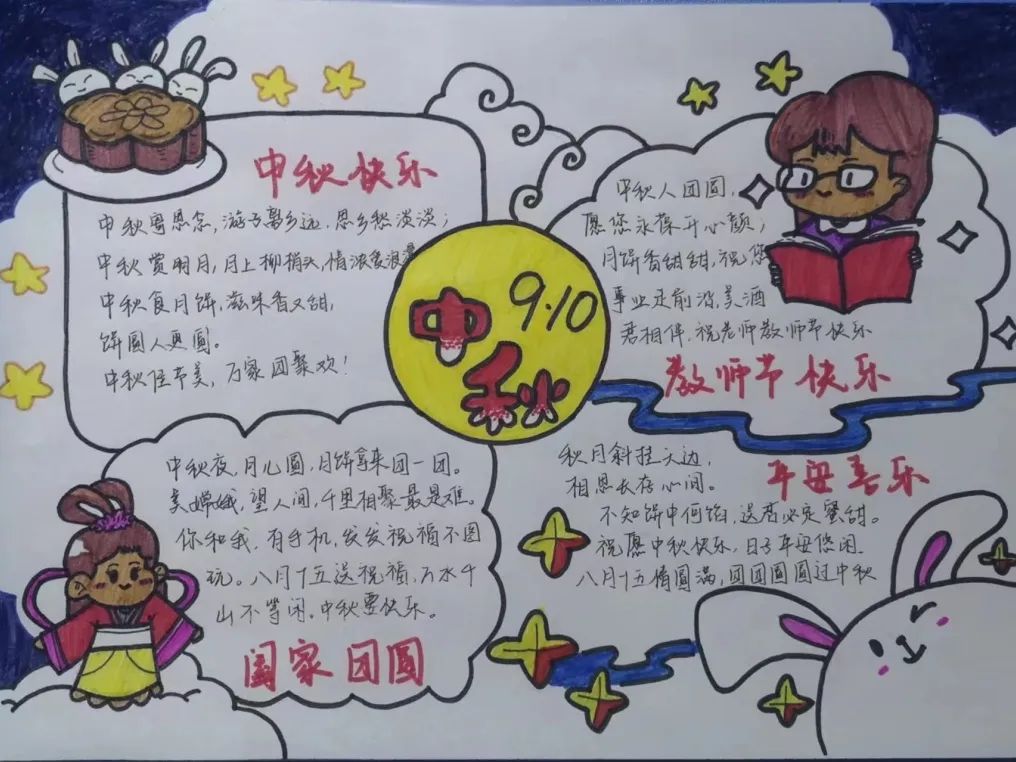 中秋快乐
中秋寄思念,游子离乡远,思乡愁淡淡;
中秋赏明月,月上柳梢头,情浓爱浪漫
中秋食月饼,滋味香又甜,
饼圆人更圆。
中秋佳节美,万家团聚欢!
9.10
中
秋
中秋人团圆,
愿您永葆开心颜;
月饼香甜甜,祝您
事业走前沿,美酒
君相伴,祝老师教师节快乐
教师节快乐
中秋夜,月儿圆,月饼拿来团一团。
美嫦娥,望人间,千里相聚最是难。
你和我,有手机,发发祝福不图
玩。八月十五送祝福,万水千
山不等闲。中秋要快乐。
阖家团圆
平安喜乐
秋月斜挂天边,
相思长存心间。
不知饼中何馅,送君必定蜜甜。
祝愿中秋快乐,日子平安悠闲.
八月十五情圆满,团团圆圆过中秋